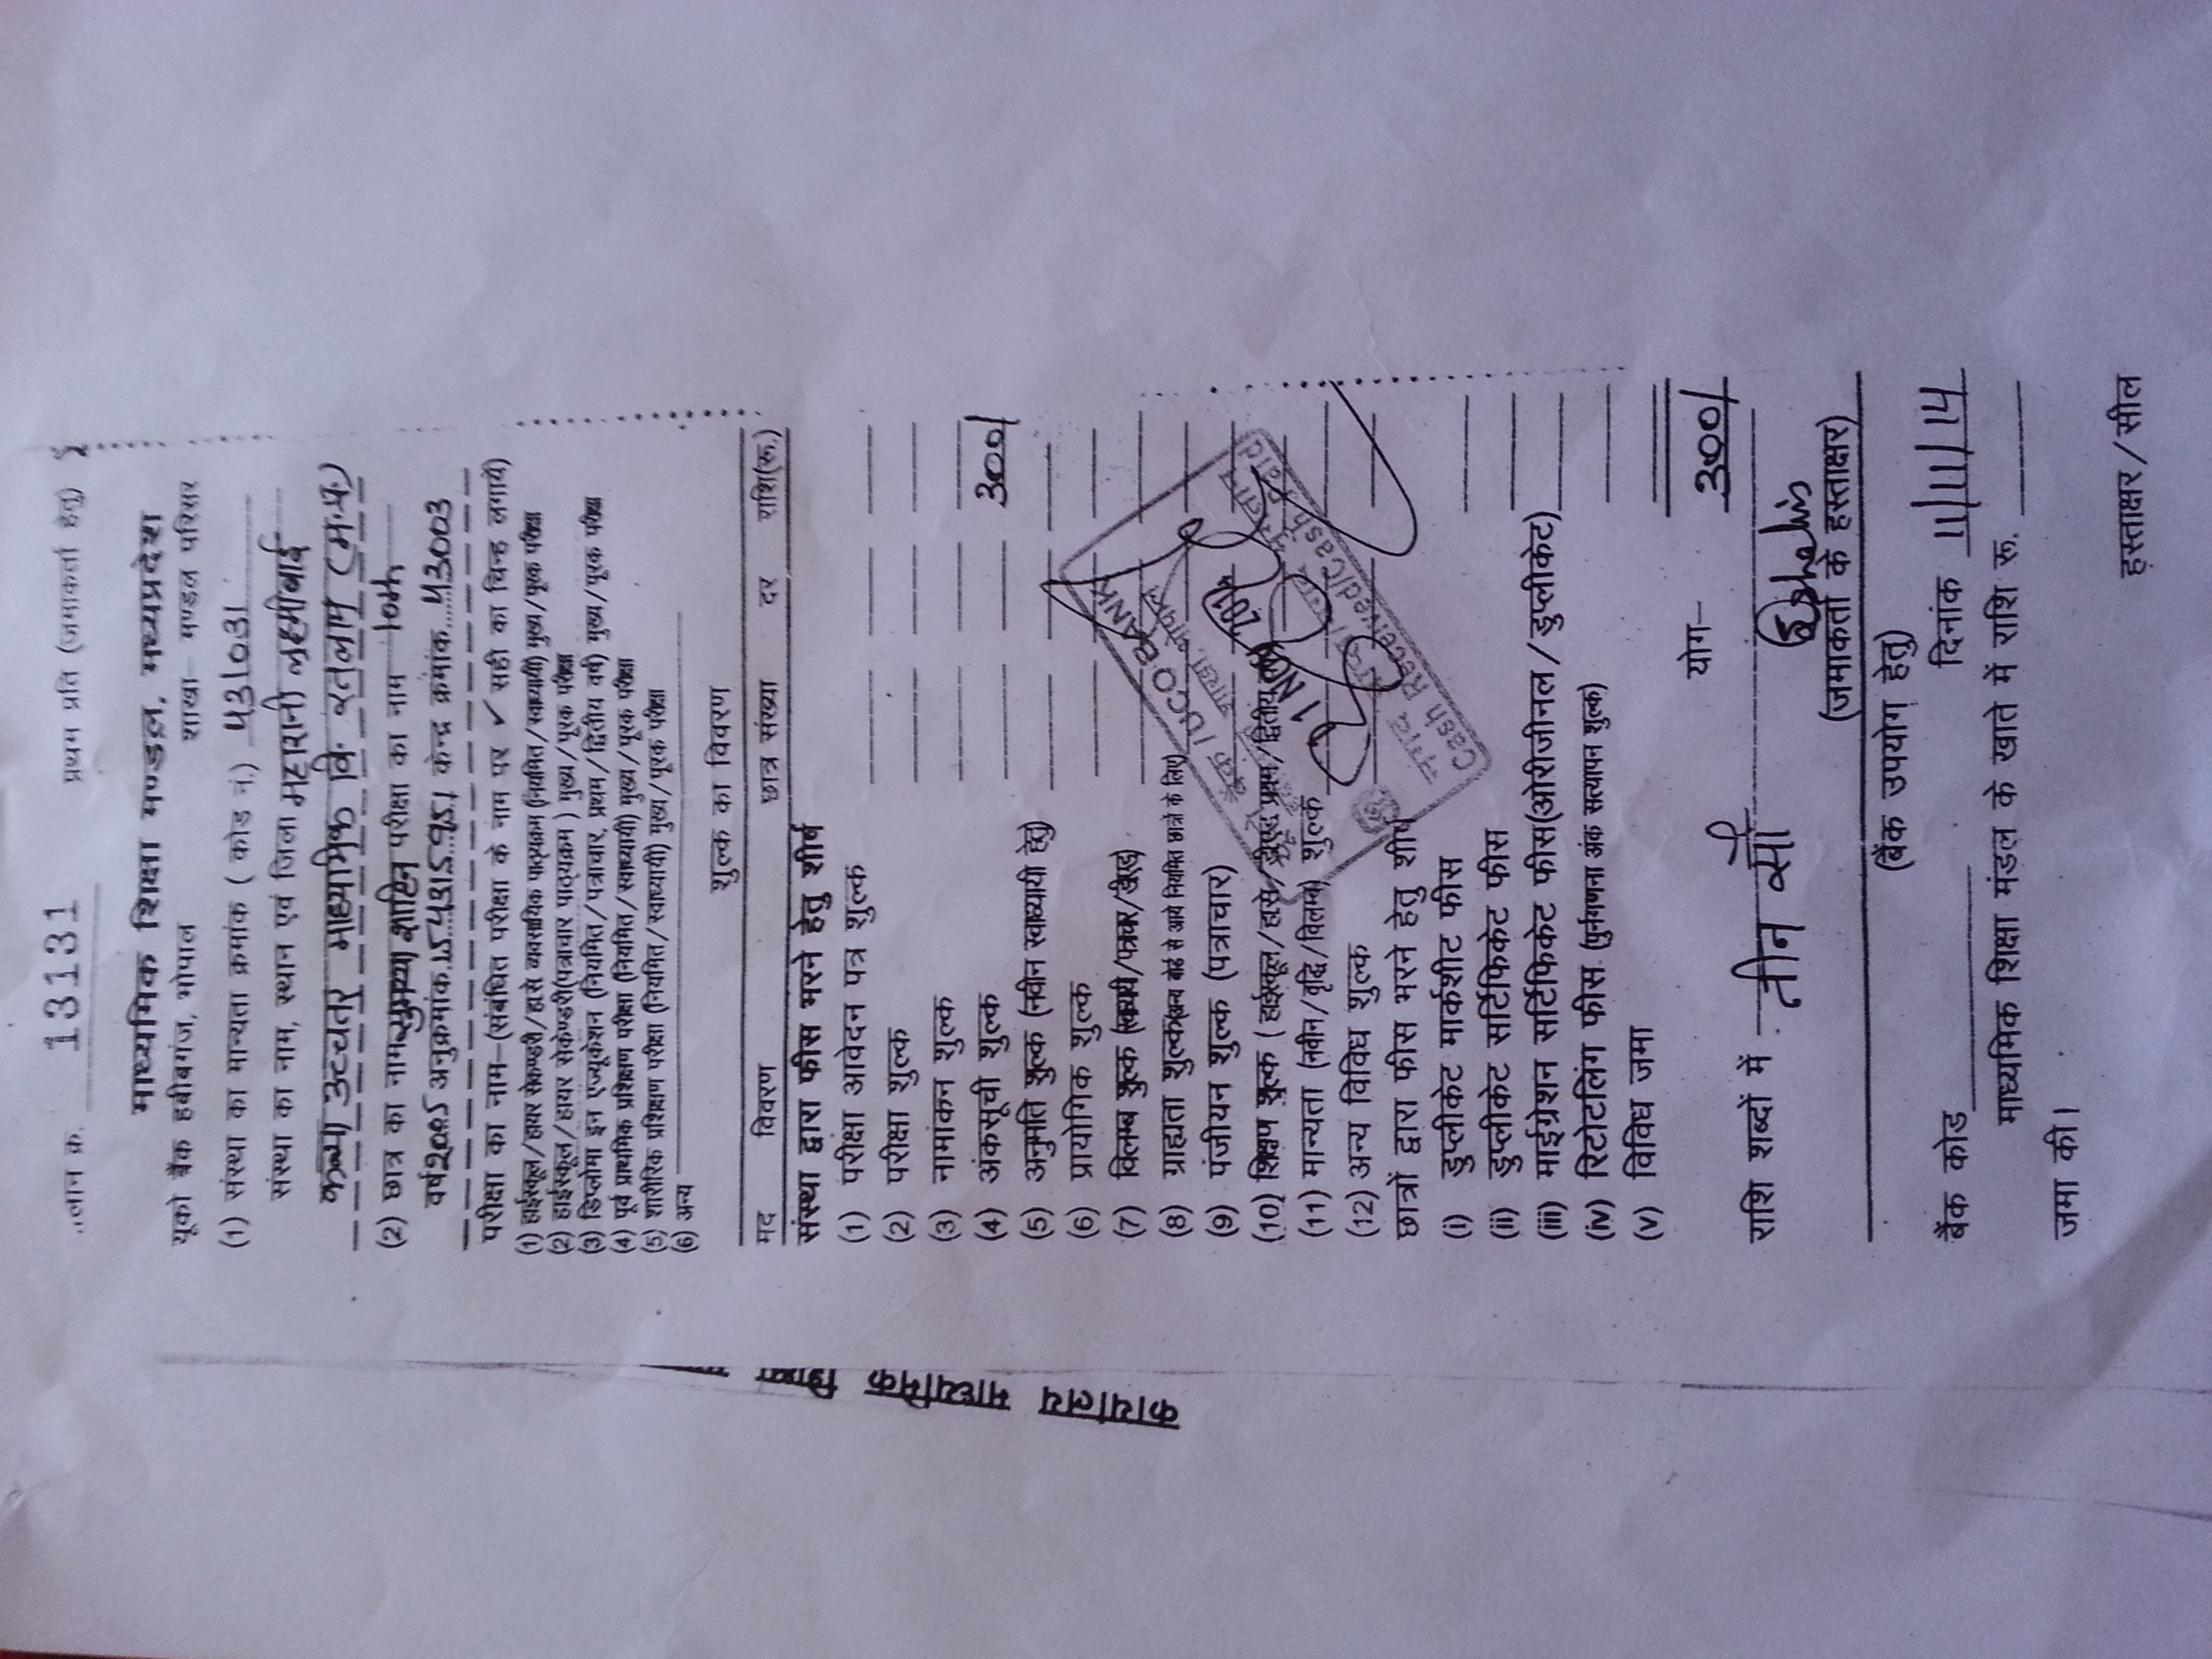 ..लान क. 13131 प्रथम प्रति (जमाकर्ता हेतु)
माध्यमिक शिक्षा मण्डल, मध्यप्रदेश
यूको बैंक हबीबगंज, भोपाल शाखा— मण्डल परिसर
(1) संस्था का मान्यता क्रमांक ( कोड नं.) 431031
संस्था का नाम, स्थान एवं जिला महारानी लक्ष्मीबाई
कन्या उच्चतर माध्यमिक वि. रतलाम (म.प्र.)
(2) छात्र का नाम परीक्षा का नाम 10th
वर्ष 2005 अनुक्रमांक केन्द्र क्रमांक 43003
परीक्षा का नाम—(संबंधित परीक्षा के नाम पर ✓ सही का चिन्ह लगायें)
(1) हाईस्कूल/हायर सेकण्डरी/हासे व्यवसायिक पाठ्यक्रम (नियमित/स्वाध्यायी) मुख्य/पूरक परीक्षा
(2) हाईस्कूल/हायर सेकेण्डरी(पत्राचार पाठ्यक्रम ) मुख्य/पूरक परीक्षा
(3) डिप्लोमा इन एज्यूकेशन (नियमित/पत्राचार, प्रथम/द्वितीय वर्ष) मुख्य/पूरक परीक्षा
(4) पूर्व प्राथमिक प्रशिक्षण परीक्षा (नियमित/स्वाध्यायी) मुख्य/पूरक परीक्षा
(5) शारीरिक प्रशिक्षण परीक्षा (नियमित/स्वाध्यायी) मुख्य/पूरक परीक्षा
(6) अन्य
शुल्क का विवरण
मद विवरण छात्र संख्या दर राशि(रू.)
संस्था द्वारा फीस भरने हेतु शीर्ष
(1) परीक्षा आवेदन पत्र शुल्क
(2) परीक्षा शुल्क
(3) नामांकन शुल्क
(4) अंकसूची शुल्क 300/
(5) अनुमति शुल्क (नवीन स्वाध्यायी हेतु)
(6) प्रायोगिक शुल्क
(7) विलम्ब शुल्क
(8) ग्राह्यता शुल्क(अन्य बोर्ड से आये नियमित छात्रों के लिए)
(9) पंजीयन शुल्क (पत्राचार)
(10) शिक्षण शुल्क ( हाईस्कूल/हासे/डीएड प्रथम/द्वितीय
(11) मान्यता (नवीन/वृद्धि/विलम्ब) शुल्क
(12) अन्य विविध शुल्क
बैंक / UCO BANK
11 NOV 2014
Received/Cash Paid
नगद
Cash
छात्रों द्वारा फीस भरने हेतु शीर्ष
(i) डुप्लीकेट मार्कशीट फीस
(ii) डुप्लीकेट सर्टिफिकेट फीस
(iii) माईग्रेशन सर्टिफिकेट फीस(ओरीजीनल/डुप्लीकेट)
(iv) रिटोटलिंग फीस (पुर्नगणना अंक सत्यापन शुल्क)
(v) विविध जमा
योग— 300/
राशि शब्दों में तीन सौ
(जमाकर्ता के हस्ताक्षर)
(बैंक उपयोग हेतु)
बैंक कोड दिनांक 11/11/14
माध्यमिक शिक्षा मंडल के खाते में राशि रू.
जमा की।
हस्ताक्षर/सील
कार्यालय माध्यमिक शिक्षा